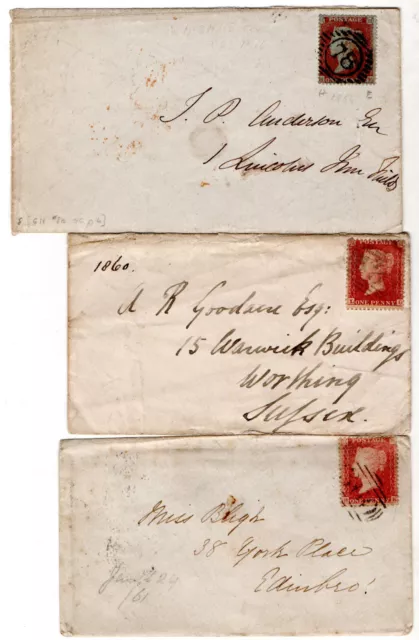 POSTAGE
78
H E
J. P. Anderson Esq
1 Lincolns Inn Fields
1860.
POSTAGE
ONE PENNY
A R Goodaere Esq:
15 Warwick Buildings
Worthing
Sussex.
POSTAGE
Miss Bligh
38 York Place
Edinbro'
Jany 24
/61